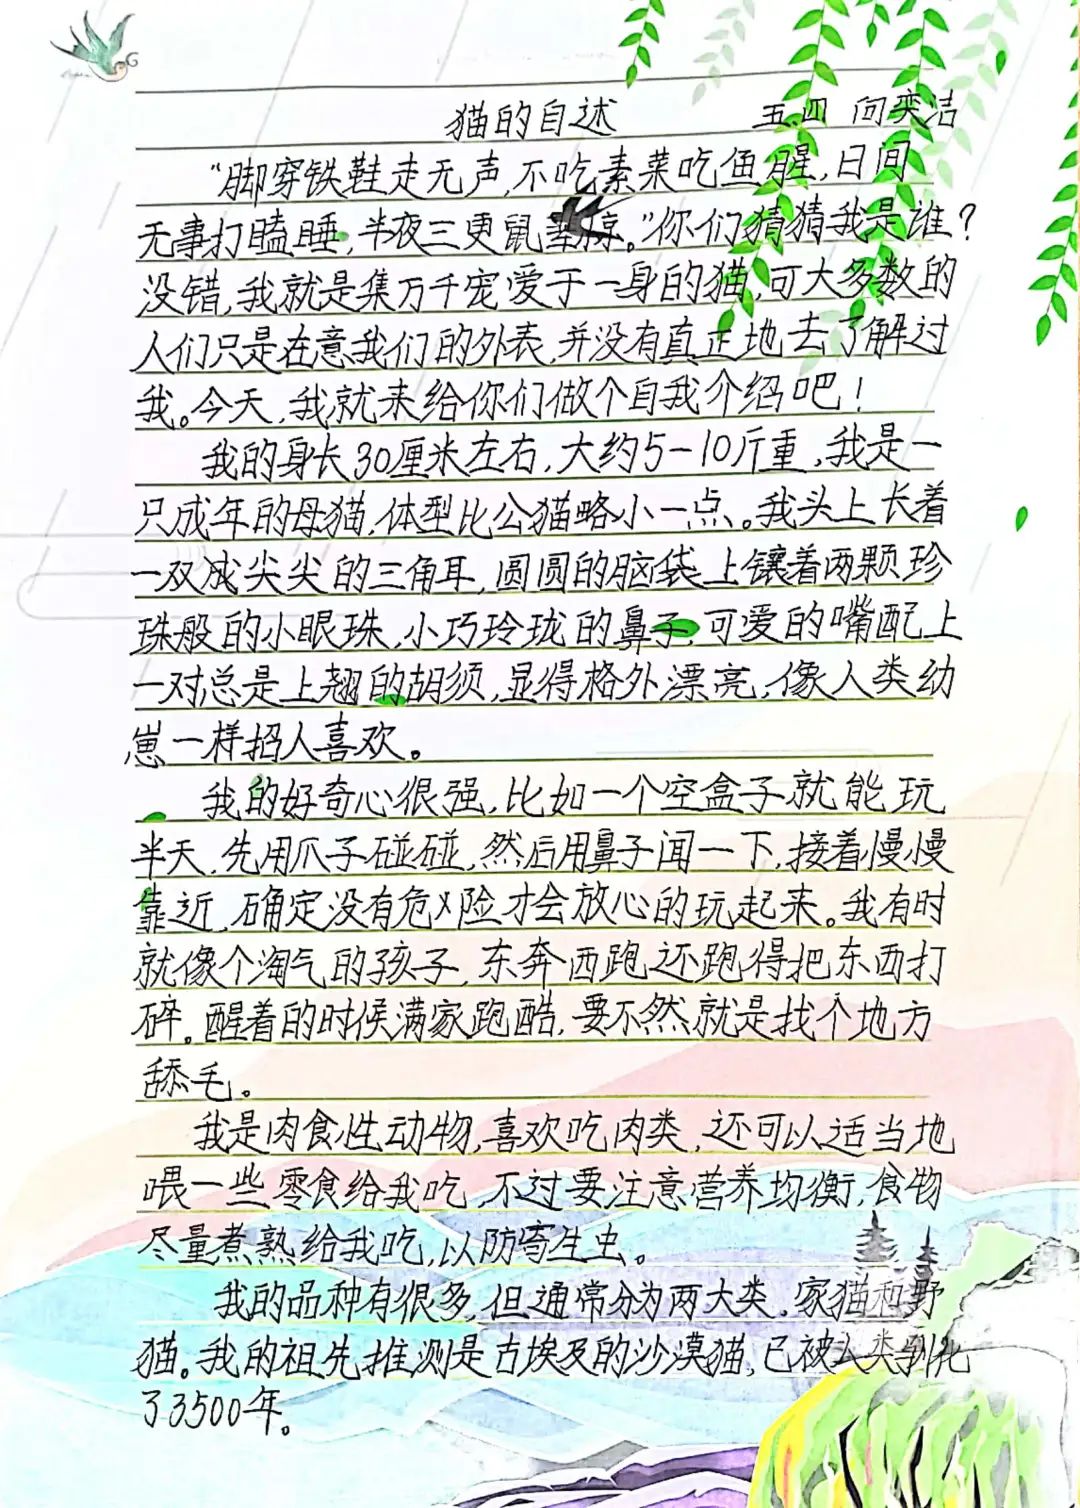 猫的自述 五.四 问奕洁
“脚穿铁鞋走无声,不吃素菜吃鱼腥,日间
无事打瞌睡,半夜三更鼠掠。”你们猜猜我是谁?
没错,我就是集万千宠爱于一身的猫,可大多数的
人们只是在意我们的外表,并没有真正地去了解过
我。今天,我就来给你们做个自我介绍吧!
我的身长30厘米左右,大约5-10斤重,我是一
只成年的母猫,体型比公猫略小一点。我头上长着
一双成尖尖的三角耳,圆圆的脑袋上镶着两颗珍
珠般的小眼珠,小巧玲珑的鼻子,可爱的嘴配上
一对总是上翘的胡须,显得格外漂亮,像人类幼
崽一样招人喜欢。
我的好奇心很强,比如一个空盒子就能玩
半天,先用爪子碰碰,然后用鼻子闻一下,接着慢慢
靠近,确定没有危险才会放心的玩起来。我有时
就像个淘气的孩子,东奔西跑还跑得把东西打
碎。醒着的时候满家跑酷,要不然就是找个地方
舔毛。
我是肉食性动物,喜欢吃肉类,还可以适当地
喂一些零食给我吃,不过要注意营养均衡,食物
尽量煮熟给我吃,以防寄生虫。
我的品种有很多,但通常分为两大类,家猫和野
猫。我的祖先推测是古埃及的沙漠猫,已被人类驯化
了3500年。